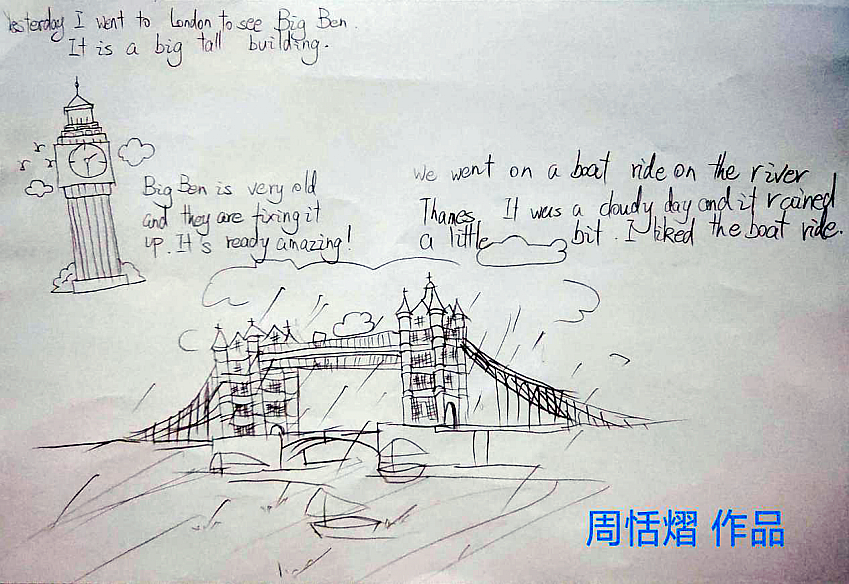 Yesterday I went to London to see Big Ben.
It is a big tall building.
Big Ben is very old
and they are fixing it
up. It's ready amazing!
We went on a boat ride on the river
Thames. It was a cloudy day and it rained
a little bit. I liked the boat ride.
周恬熠 作品